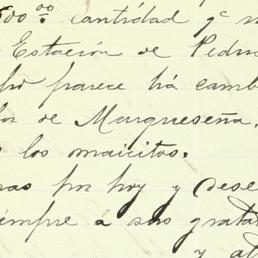 500 00 cantidad qe
Estación de Pedr
parece há camb
de Marqueseña,
los maicitos.
por hoy y dese
siempre á sus grata
y at